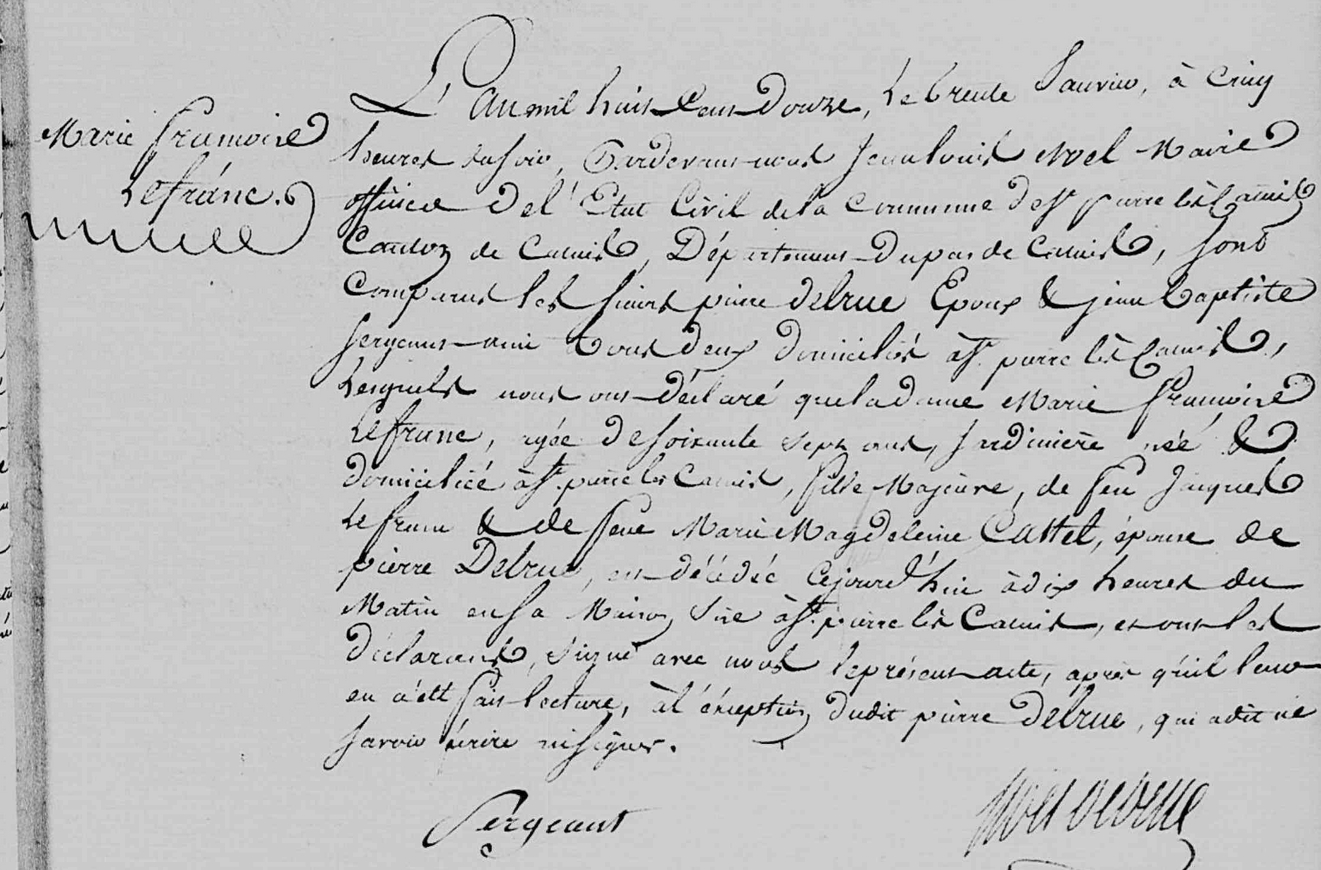 Marie françoise
Lefranc.
L'an mil huit Cent Douze, Le trente Janvier, à Cinq
heures du soir, Pardevant nous Jean louis Noel Maire
officier De l'Etat Civil de la Commune de St. pierre lès Calais
Canton de Calais, Département du pas de Calais, sont
Comparus les sieurs pierre delrue Epoux & jean baptiste
sergeant ami tous deux domiciliés à St. pierre lès Calais,
Lesquels nous ont déclaré que la dame Marie françoise
Lefranc, agée de soixante sept ans, Jardinière née &
domiciliée à St. pierre lès Calais, fille Majeure, de feu Jacques
Lefranc & de feue Marie Magdeleine Cattel, épouse de
pierre Delrue, est décédée cejourd'hui à dix heures du
Matin en sa Maison Sise à St. pierre lès Calais, et ont les
déclarants, signé avec nous le présent acte, après qu'il leur
en a été fait lecture, à l'exception dudit pierre delrue, qui a dit ne
savoir écrire ni signer.
Sergeant